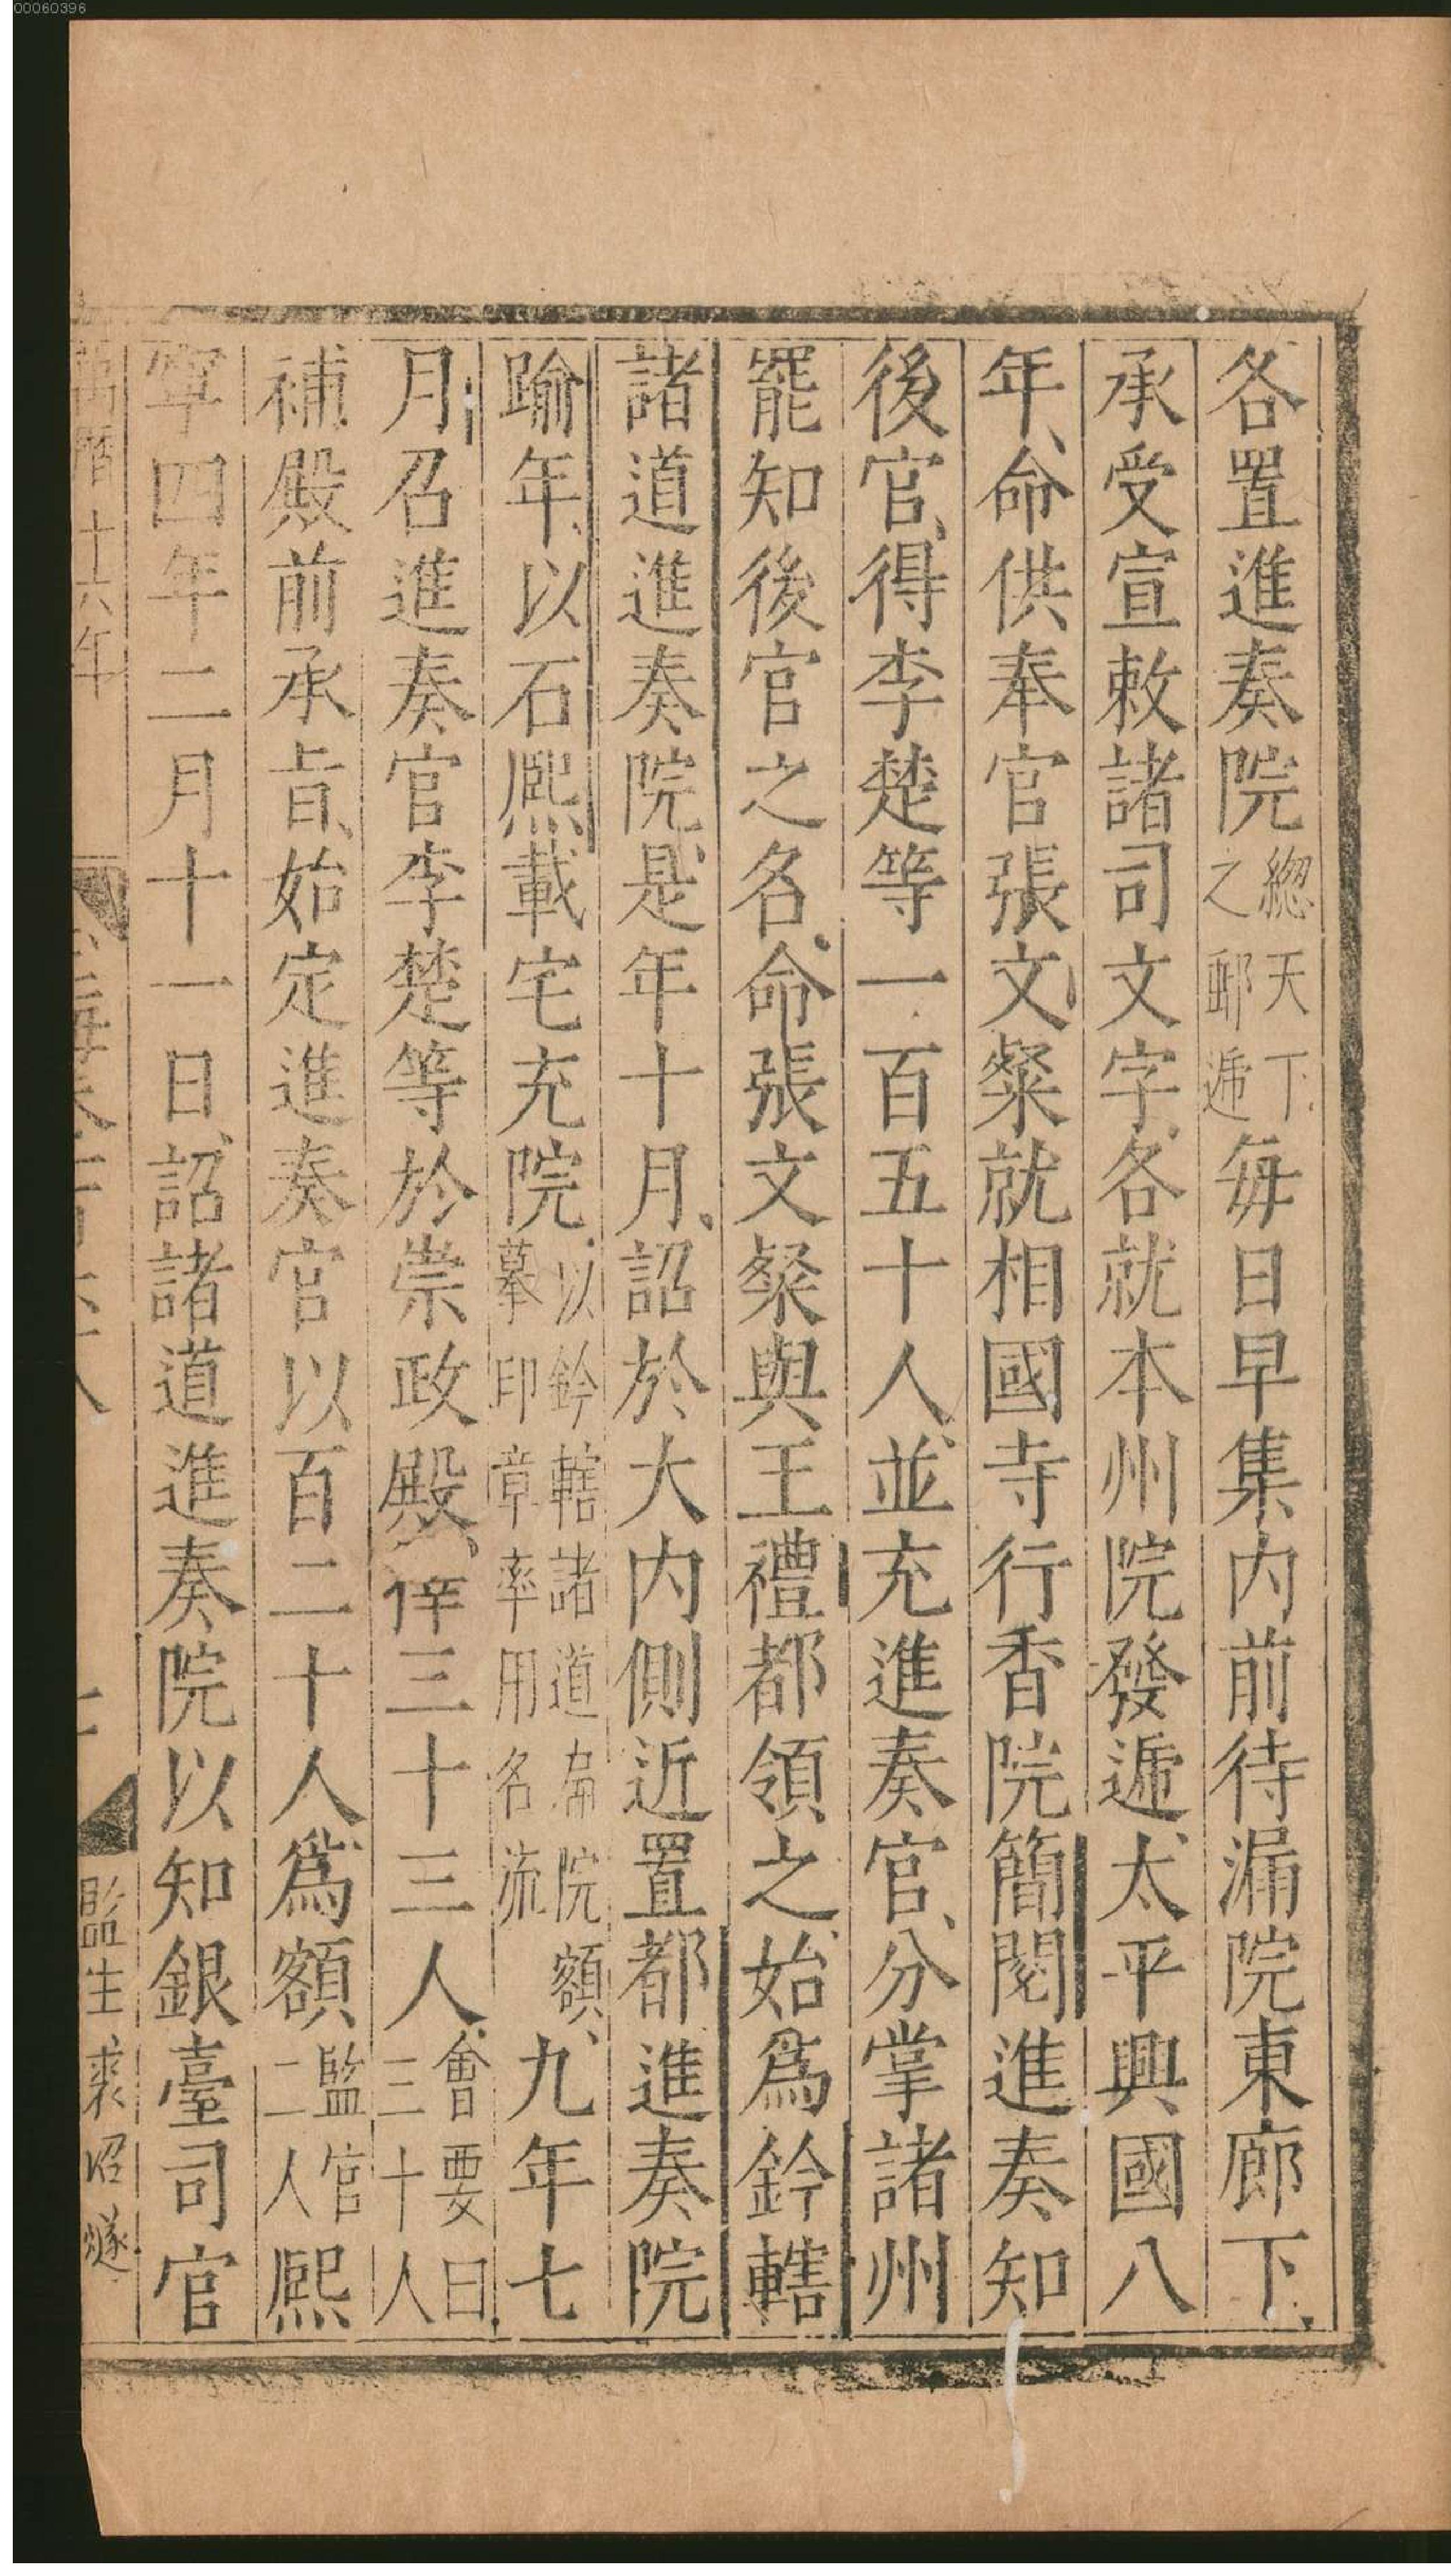 00060396
各置進奏院總天下之郵遞每日早集内前待漏院東廊下
承受宣敕諸司文字各就本州院發遞太平興國八
年命供奉官張文粲就相國寺行香院簡閱進奏知
後官得李楚等一百五十人並充進奏官分掌諸州
罷知後官之名命張文粲與王禮都領之始爲鈐轄
諸道進奏院是年十月詔於大内側近置都進奏院
踰年以石熙載宅充院以鈐轄諸道奏院額摹印章率用名流九年七
月召進奏官李楚等於崇政殿㑹要曰三十人
補殿前承旨始定進奏官以百二十人爲額監官二人熙
寧四年十二月十一日詔諸道進奏院以知銀臺司官
萬曆十六年
監生裘昭